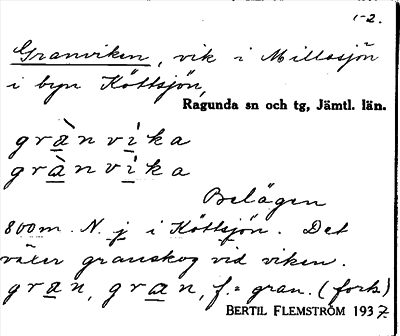 1-2.
Granviken, vik i Millosjön
i byn Köttsjön,
Ragunda sn och tg, Jämtl. län.
grànvika
grànvika
Belägen
800m. N. j i Köttsjön. Det
växer granskog vid viken.
gran, gran, f. = gran. (forts)
BERTIL FLEMSTRÖM 1937